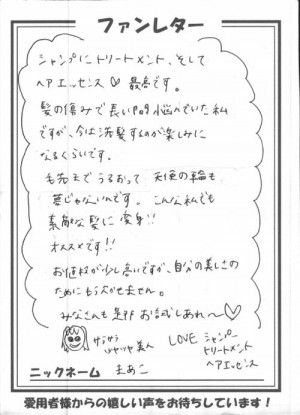 ファンレター
シャンプにトリートメント、そして
ヘアエッセンス♡最高です。
髪の傷みで長い間悩んでいた私
ですが、今は洗髪するのが楽しみに
なるくらいです。
毛先までうるおって 天使の輪も
夢じゃないんです。こんな私でも
素敵な髪に変身!!
オススメです!!
お値段が少し高いですが、自分の美しさの
ためにもう欠かせません。
みなさんも是非お試しあれ〜♡
サラサラ
ツヤツヤ美人
LOVE シャンプー
トリートメント
ヘアエッセンス
ニックネーム まあこ
愛用者様からの嬉しい声をお待ちしています!